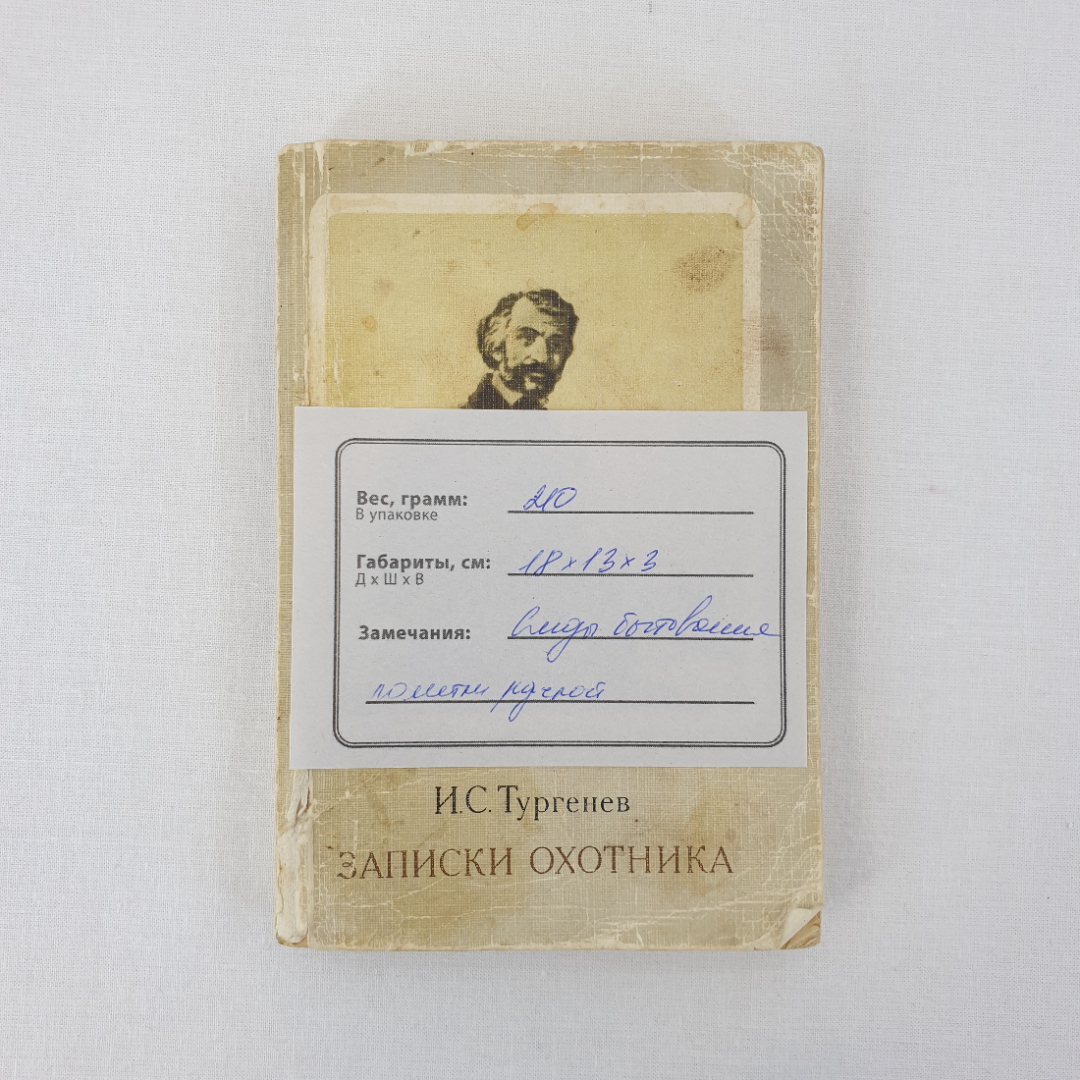 Вес, грамм: 210
В упаковке
Габариты, см: 18 x 13 x 3
Д x Ш x В
Замечания: Следы бытования
пометки ручкой
И.С. Тургенев
ЗАПИСКИ ОХОТНИКА